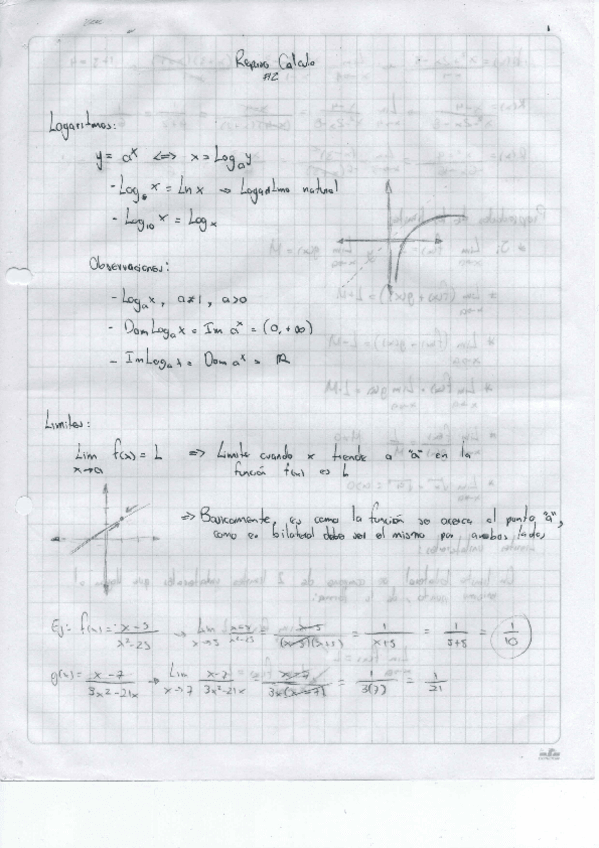 Repaso Cálculo
#2
Logaritmos:
y = a^x <=> x = Log_a y
- Log_e x = Ln x → Logaritmo natural
- Log_10 x = Log x
Observaciones:
- Log_a x, a≠1, a>0
- Dom Log_a x = Im a^x = (0, +∞)
- Im Log_a x = Dom a^x = ℝ
Limites:
Lim f(x) = L => Limite cuando x tiende a "a" en la
x→a función f(x) es L
=> Basicamente, es como la función se acerca al punto "a",
como es bilateral debe ser el mismo por ambos lados
Ej: f(x) = x-5 / x²-25 → Lim x→5 x-5 / x²-25 = x-5 / (x-5)(x+5) = 1 / x+5 = 1 / 5+5 = 1/10
g(x) = x-7 / 3x²-21x → Lim x→7 x-7 / 3x²-21x = x-7 / 3x(x-7) = 1 / 3(7) = 1/21